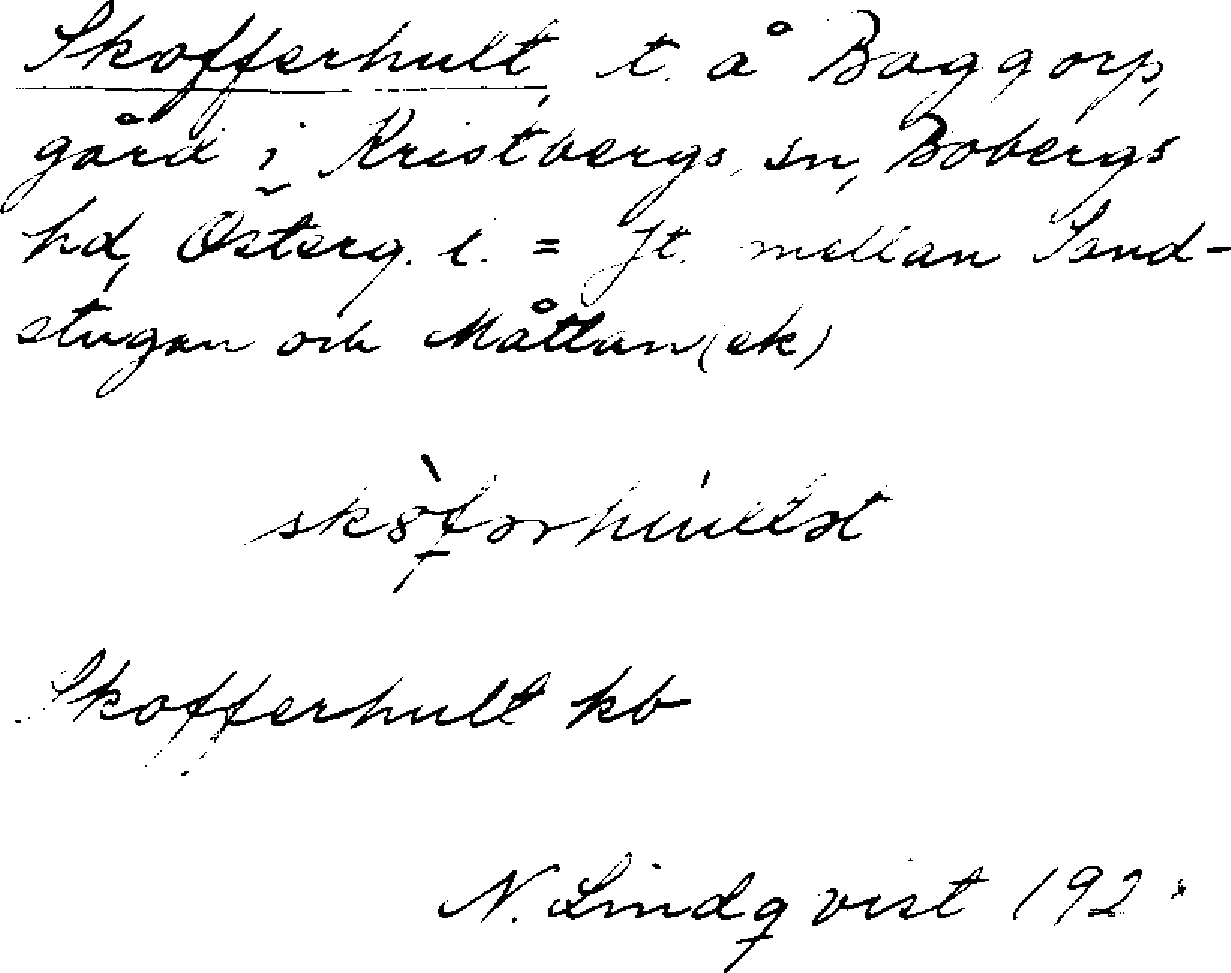 Skofferhult, t. å Baggorp,
gård i Kristbergs sn, Bobergs
hd, Österg. l. = Jt. mellan Sand-
stugan och Måttan (ek)
Skofferhult kb
N. Lindqvist